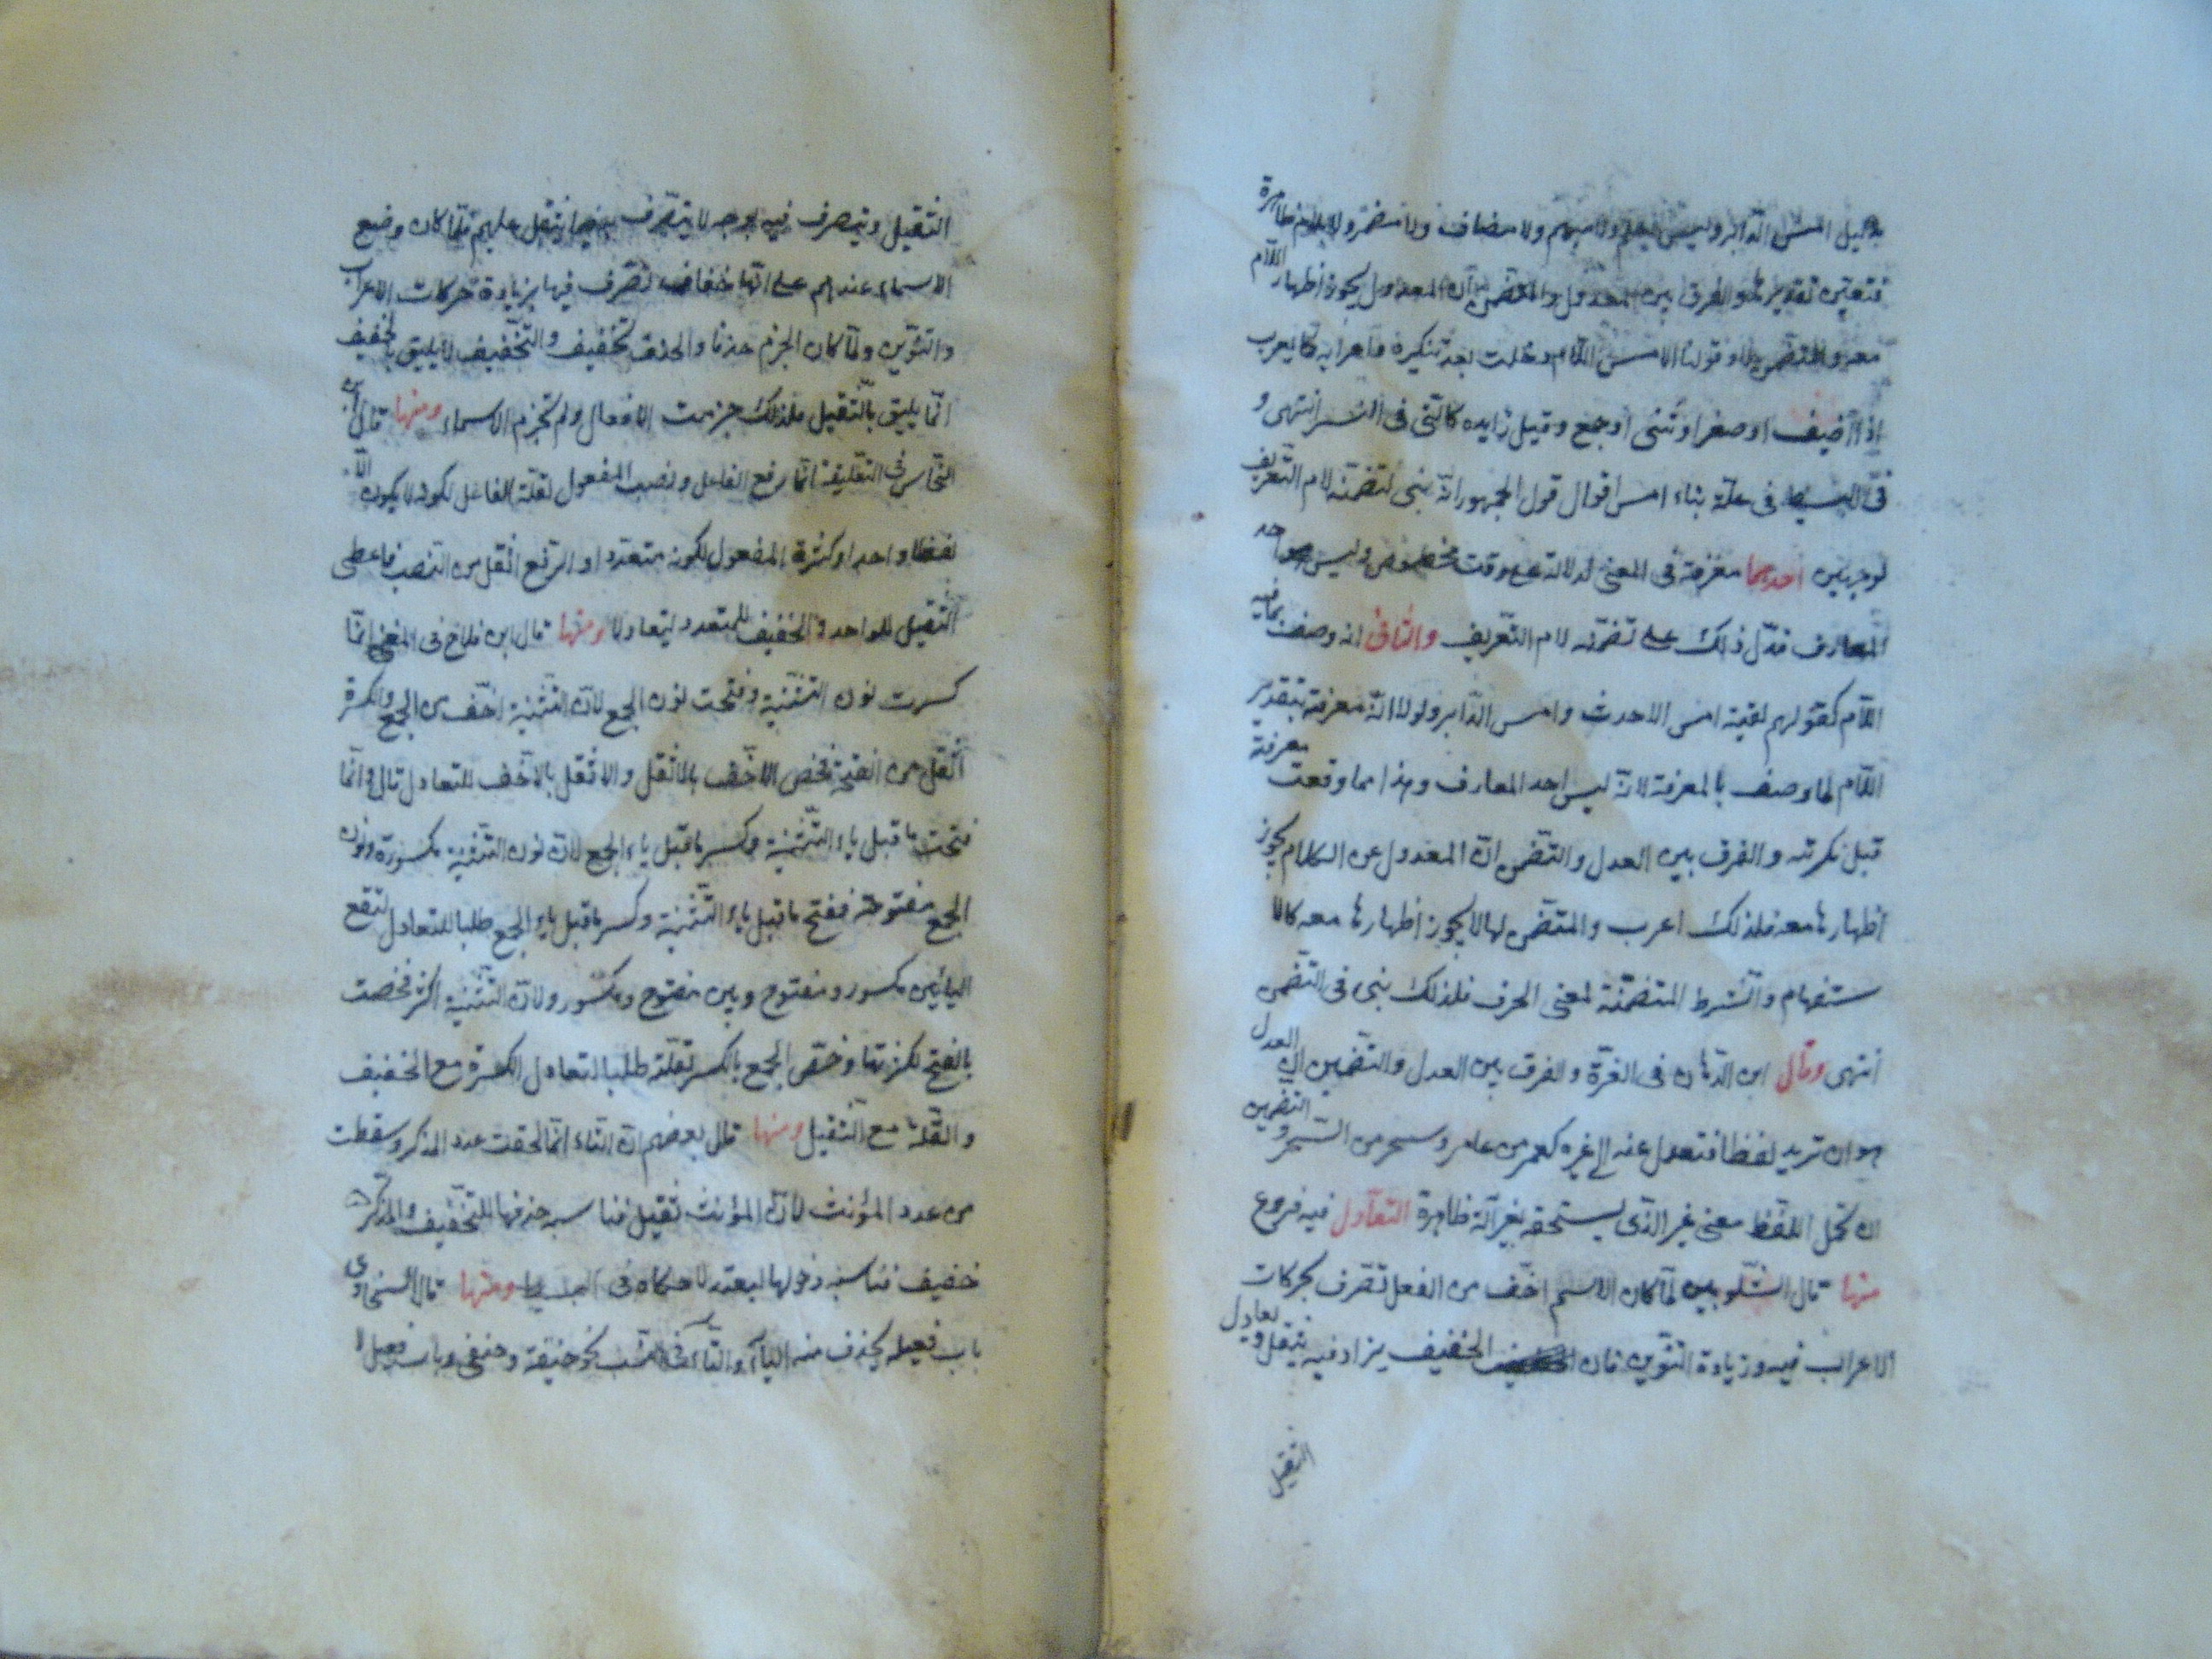 بدليل امس الدابر وليس بعلم ولا مبهم ولا مضاف ولا مضمر ولا بلام ظاهرة
فتعين تقديرها والفرق بين المعدول والمتضمن ان المعدول يجوز اظهار اللام
معه والمتضمن لا وقولنا الامس اللام دخلت بعد تنكيره فاعرابه كما يعرب
اذا اضيف او صغر او ثنى او جمع وقيل زايده كالتى فى النسر انتهى و
فى البسيط فى علة بناء امس اقوال قول الجمهور انه بنى لتضمنه لام التعريف
لوجهين احدهما معرفة فى المعنى لدلالته على وقت مخصوص وليس هو احد
المعارف فدل ذلك على تضمنه لام التعريف والثانى انه وصف بما فيه
اللام كقولهم لقيته امس الاحدث وامس الدابر ولولا انه معرفة بتقدير
اللام لما وصف بالمعرفة لانه ليس احد المعارف وهذا مما وقعت معرفة
قبل نكرته والفرق بين العدل والتضمن ان المعدول عن الكلام يجوز
اظهارها معه فلذلك اعرب والمتضمن لها لا يجوز اظهارها معه كالا
ستفهام والشرط المتضمنة لمعنى الحرف فلذلك بنى فى التضمن
انتهى وقال ابن الدهان فى الغرة والفرق بين العدل والتضمين ان العدل
هو ان تريد لفظا فتعدل عنه الى غيره كعمر من عامر وسحر من السحر والتضمين
ان تحمل اللفظ معنى غير الذى يستحقه بغير آلة ظاهرة التعادل فيه فروع
منها قال الشلوبين لما كان الاسم اخف من الفعل تصرف بحركات
الاعراب فيه وزيادة التنوين فان الخفيف يزاد فيه ليثقل ويعادل
الثقيل
الثقيل ويتصرف فيه بوجه لا يتصرف فيما يثقل عليهم فلما كان وضع
الاسماء عندهم على انها خفاف تصرف فيها بزيادة حركات الاعراب
والتنوين ولما كان الجزم حذفا والحذف تخفيف والتخفيف لا يليق بالخفيف
انما يليق بالثقيل فلذلك جزمت الافعال ولم تجزم الاسماء ومنها قال ابن
النحاس فى التعليقة انما رفع الفاعل ونصب المفعول لقلة الفاعل لكونه لا يكون الا
لفظا واحدا وكثرة المفعول لكونه متعددا والرفع اثقل من النصب فاعطى
الثقيل للواحد والخفيف للمتعدد ليتعادلا ومنها قال ابن فلاح فى المغنى انما
كسرت نون التثنية وفتحت نون الجمع لان التثنية اخف من الجمع والكسرة
اثقل من الفتحة فخص الاخف بالاثقل والاثقل بالاخف للتعادل قال وانما
فتحت ما قبل ياء التثنية وكسر ما قبل ياء الجمع لان نون التثنية مكسورة ونون
الجمع مفتوحة ففتح ما قبل ياء التثنية وكسر ما قبل ياء الجمع طلبا للتعادل لتقع
اليا بين مكسور ومفتوح وبين مفتوح ومكسور ولان التثنية اكثر فخصت
بالفتح لكثرتها وخص الجمع بالكسر لقلته طلبا لتعادل الكثرة مع الخفيف
والقلة مع الثقيل ومنها قال بعضهم ان التاء انما لحقت عدد المذكر وسقطت
من عدد المؤنث لان المؤنث ثقيل فناسبه حذفها للتخفيف والمذكر
خفيف فناسبه دخولها ليعتدلا حكاه فى البسيط ومنها قال السخاوى
باب فعيلة يحذف منه الياء والتاء فى النسب نحو حنيفة وحنفى وباب فعيل لا